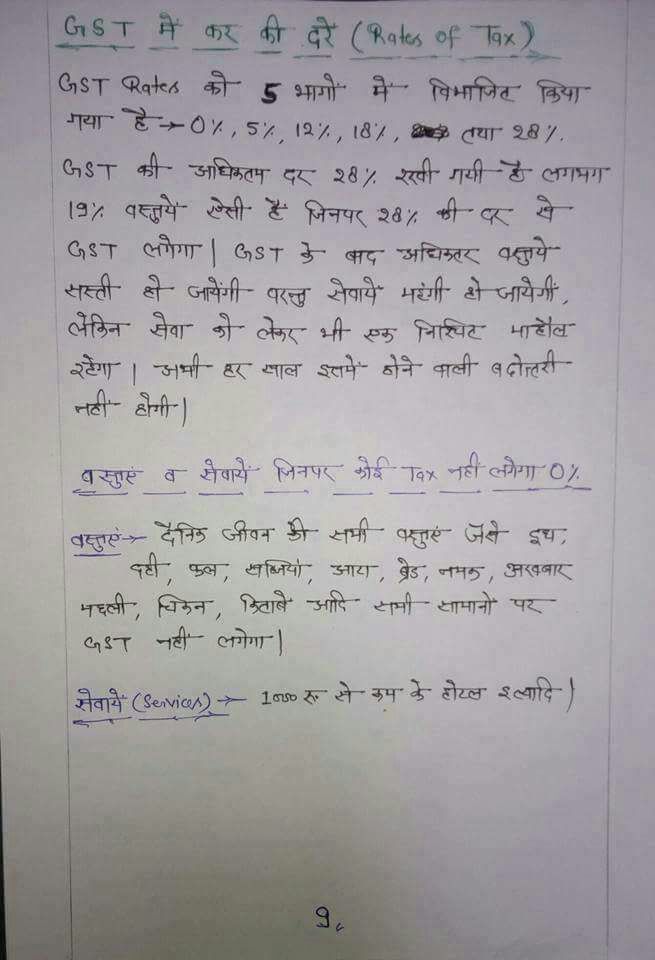 GST में कर की दरें (Rates of Tax)
GST Rates को 5 भागों में विभाजित किया
गया है → 0%, 5%, 12%, 18%, तथा 28%.
GST की अधिकतम दर 28% रखी गयी है लगभग
19% वस्तुयें ऐसी हैं जिनपर 28% की दर से
GST लगेगा | GST के बाद अधिकतर वस्तुयें
सस्ती हो जायेंगी परन्तु सेवायें महंगी हो जायेगीं,
लेकिन सेवा को लेकर भी एक निश्चित माहौल
रहेगा | अभी हर साल इसमें होने वाली बढोत्तरी
नहीं होगी |
वस्तुएं व सेवायें जिनपर कोई Tax नहीं लगेगा 0%
वस्तुएं → दैनिक जीवन की सभी वस्तुएं जैसे दूध,
दही, फल, सब्जियां, आटा, ब्रेड, नमक, अखबार
मछली, चिकन, किताबें आदि सभी सामानों पर
GST नहीं लगेगा |
सेवायें (Services) → 1000 रु से कम के होटल इत्यादि |
9